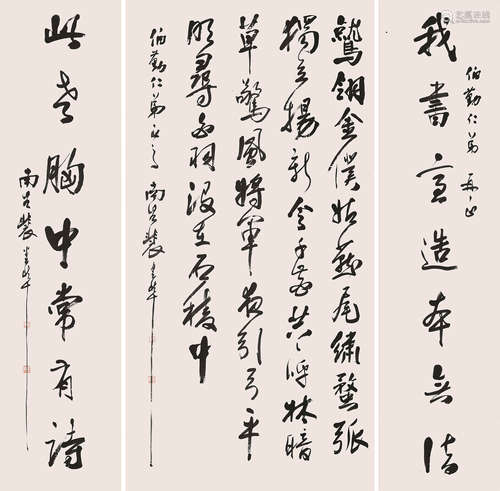 我書意造本無法
伯勤仁弟
鷲翎金僕姑燕尾繡蝥弧
獨立揚新令千營共一呼林暗
草驚風將軍夜引弓平
明尋白羽沒在石稜中
伯勤仁弟正之
此老胸中常有詩